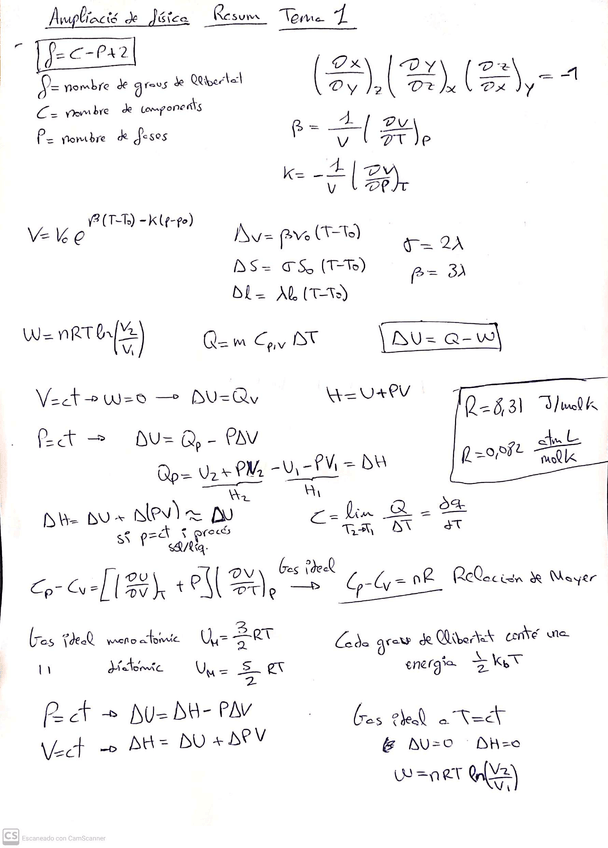 Ampliació de física Resum Tema 1
f=C-P+2
f=nombre de graus de llibertat
C=nombre de components
P=nombre de fases
(∂x/∂y)z (∂y/∂z)x (∂z/∂x)y = -1
β = 1/V (∂V/∂T)p
K = -1/V (∂V/∂P)T
V=V₀ e^β(T-T₀)-K(p-p₀)
ΔV=βV₀(T-T₀)
ΔS=σS₀(T-T₀)
Δl=λl₀(T-T₀)
σ=2λ
β=3λ
W=nRT ln(V₂/V₁)
Q=m Cp,v ΔT
ΔU=Q-W
V=ct→W=0→ΔU=Qv
H=U+PV
R=8,31 J/molk
R=0,082 atm L/molK
P=ct→ ΔU=Qp-PΔV
Qp=U₂+PV₂-U₁-PV₁=ΔH
H₂ H₁
ΔH=ΔU+Δ(PV)≈ΔU
si p=ct i procés
sòl/líq.
C=lim T₂→T₁ Q/ΔT = dq/dT
Cp-Cv=[(∂U/∂V)T+P](∂V/∂T)p Gas ideal → Cp-Cv=nR Relación de Mayer
Gas ideal monoatómic UM=3/2 RT
11 diatómic UM=5/2 RT
Cada grau de llibertat conté una
energia 1/2 KbT
P=ct→ΔU=ΔH-PΔV
V=ct→ΔH=ΔU+ΔPV
Gas ideal a T=ct
ΔU=0 ΔH=0
W=nRT ln(V₂/V₁)
CS Escaneado con CamScanner